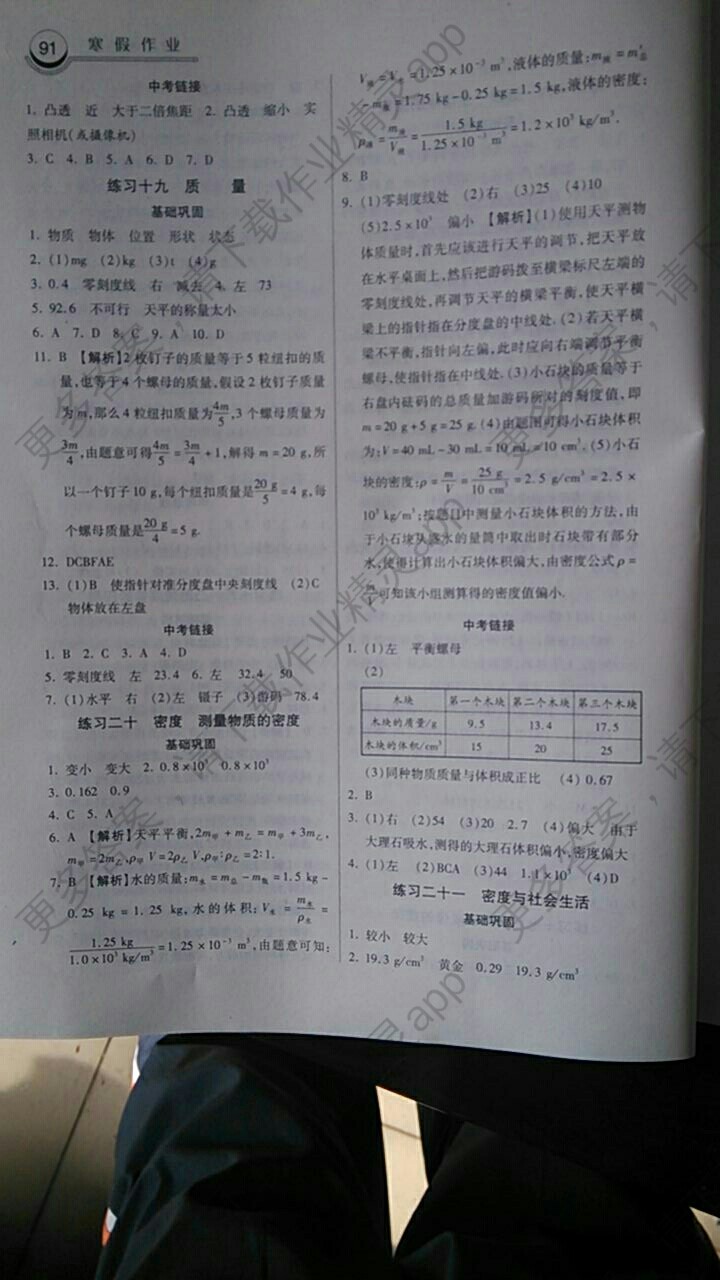 91 寒假作业
中考链接
1. 凸透 近 大于二倍焦距 2. 凸透 缩小 实
照相机(或摄像机)
3. C 4. B 5. A 6. D 7. D
练习十九 质 量
基础巩固
1. 物质 物体 位置 形状 状态
2. (1)mg (2)kg (3)t (4)g
3. 0.4 零刻度线 右 减去 4. 左 73
5. 92.6 不可行 天平的称量太小
6. A 7. D 8. C 9. A 10. D
11. B 【解析】2枚钉子的质量等于5粒纽扣的质
量,也等于4个螺母的质量,假设2枚钉子质量
为m,那么4粒纽扣质量为4m/5,3个螺母质量为
3m/4,由题意可得4m/5=3m/4+1,解得m=20 g,所
以一个钉子10 g,每个纽扣质量是20 g/5=4 g,每
个螺母质量是20 g/4=5 g.
12. DCBFAE
13. (1)B 使指针对准分度盘中央刻度线 (2)C
物体放在左盘
中考链接
1. B 2. C 3. A 4. D
5. 零刻度线 左 23.4 6. 左 32.4 50
7. (1)水平 右 (2)左 镊子 (3)游码 78.4
练习二十 密度 测量物质的密度
基础巩固
1. 变小 变大 2. 0.8×10³ 0.8×10³
3. 0.162 0.9
4. C 5. A
6. A 【解析】天平平衡,2m甲+m乙=m甲+3m乙,
m甲=2m乙,ρ甲V=2ρ乙V,ρ甲:ρ乙=2:1.
7. B 【解析】水的质量:m水=m总-m瓶=1.5 kg-
0.25 kg=1.25 kg,水的体积:V水=m水/ρ水=
1.25 kg/1.0×10³ kg/m³=1.25×10⁻³ m³,由题意可知:
V液=V水=1.25×10⁻³ m³,液体的质量:m液=m′总
-m瓶=1.75 kg-0.25 kg=1.5 kg,液体的密度:
ρ液=m液/V液=1.5 kg/1.25×10⁻³ m³=1.2×10³ kg/m³.
8. B
9. (1)零刻度线处 (2)右 (3)25 (4)10
(5)2.5×10³ 偏小 【解析】(1)使用天平测物
体质量时,首先应该进行天平的调节,把天平放
在水平桌面上,然后把游码拨至横梁标尺左端的
零刻度线处,再调节天平的横梁平衡,使天平横
梁上的指针指在分度盘的中线处. (2)若天平横
梁不平衡,指针向左偏,此时应向右端调节平衡
螺母,使指针指在中线处. (3)小石块的质量等于
右盘内砝码的总质量加游码所对的刻度值,即
m=20 g+5 g=25 g. (4)由题图可得小石块体积
为:V=40 mL-30 mL=10 mL=10 cm³. (5)小石
块的密度:ρ=m/V=25 g/10 cm³=2.5 g/cm³=2.5×
10³ kg/m³;按题目中测量小石块体积的方法,由
于小石块从盛水的量筒中取出时石块带有部分
水,使得计算出小石块体积偏大,由密度公式ρ=
m/V可知该小组测算得的密度值偏小.
中考链接
1. (1)左 平衡螺母
(2)
木块 第一个木块 第二个木块 第三个木块
木块的质量/g 9.5 13.4 17.5
木块的体积/cm³ 15 20 25
(3)同种物质质量与体积成正比 (4)0.67
2. B
3. (1)右 (2)54 (3)20 2.7 (4)偏大 由于
大理石吸水,测得的大理石体积偏小,密度偏大
4. (1)左 (2)BCA (3)44 1.1×10³ (4)D
练习二十一 密度与社会生活
基础巩固
1. 较小 较大
2. 19.3 g/cm³ 黄金 0.29 19.3 g/cm³
更多答案,请下载作业精灵app